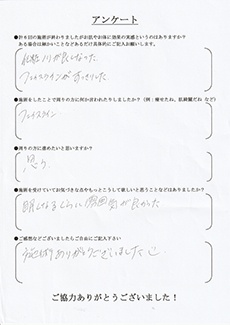 アンケート
●計6回の施術が終わりましたがお肌やお体に効果の実感というのはありますか?
ある場合は細かいことなどあるだけ具体的にご記入お願いします。
化粧ノリが良くなった
フェイスラインがすっきりした
●施術をしたことで周りの方に何か言われたりしましたか?(例:痩せたね、肌綺麗だね など)
フェイスライン
●周りの方に進めたいと思いますか?
思う
●施術を受けていてお気づきな点やもっとこうして欲しいと思うことなどはありますか?
眠くなるくらい雰囲気が良かった
●ご感想などございましたらご自由にご記入下さい
ありがとうございました
ご協力ありがとうございました!